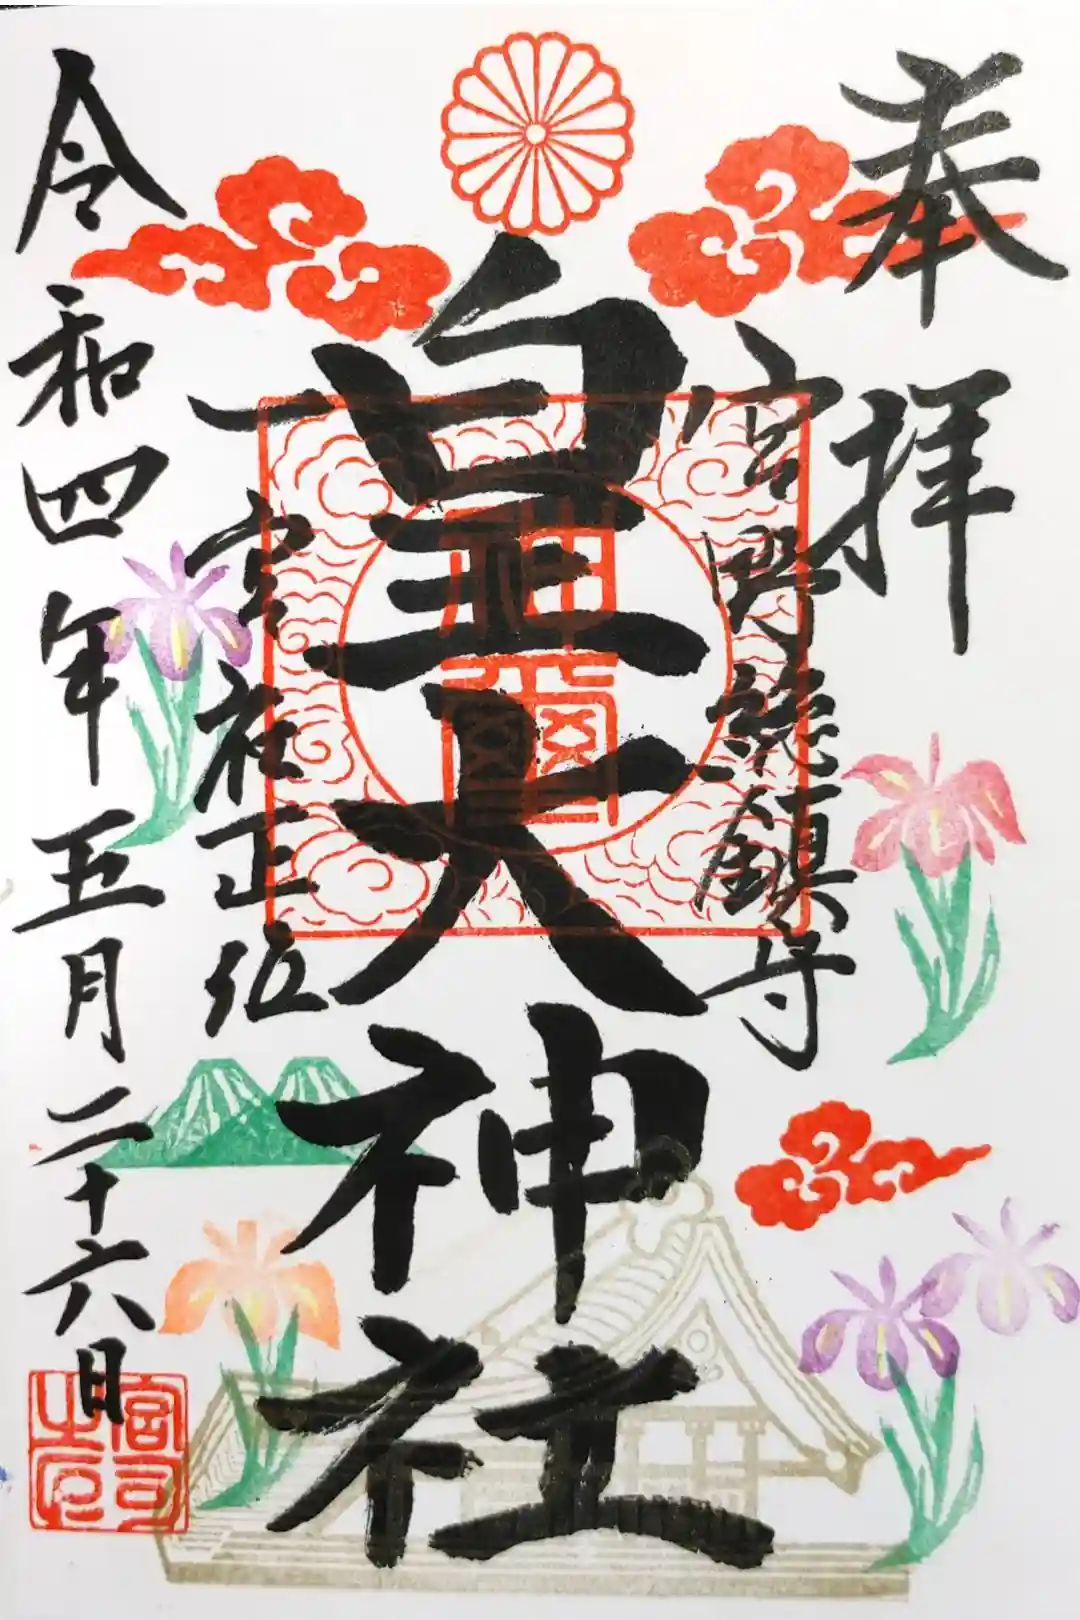 奉拝
宮野総鎮守
皇大神社
神璽
一宮社正位
令和四年五月二十六日
宮司之印